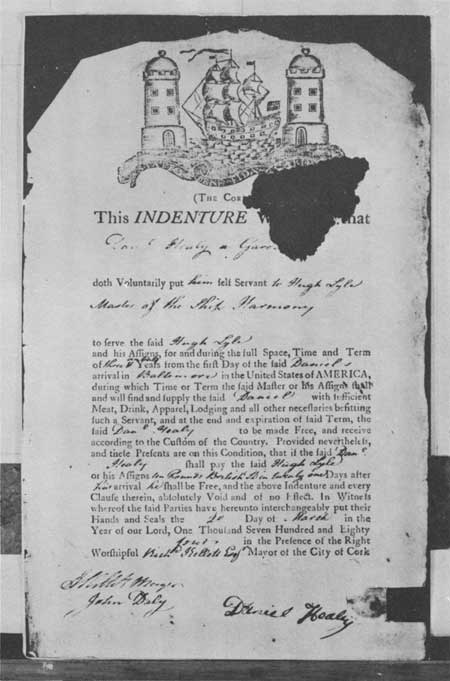 (THE COR
This INDENTURE W that
Danl. Healy a Gar
doth Voluntarily put him self Servant to Hugh Lyle
Master of the Ship Harmony
to serve the said Hugh Lyle
and his Assigns, for and during the full Space, Time and Term
of three & half Years from the first Day of the said Daniel's
arrival in Baltemore in the United States of AMERICA,
during which Time or Term the said Master or his Assigns shall
and will find and supply the said Daniel with sufficient
Meat, Drink, Apparel, Lodging and all other necessaries befitting
such a Servant, and at the end and expiration of said Term, the
said Danl. Healy to be made Free, and receive
according to the Custom of the Country. Provided nevertheless,
and these Presents are on this Condition, that if the said Danl.
Healy shall pay the said Hugh Lyle
or his Assigns ten Pounds British in twenty one Days after
his arrival he shall be Free, and the above Indenture and every
Clause therein, absolutely Void and of no Effect. In Witness
whereof the said Parties have hereunto interchangeably put their
Hands and Seals the Day of March in the
Year of our Lord, One Thousand Seven Hundred and Eighty
four in the Presence of the Right
Worshipful Richd. Kellett Esq Mayor of the City of Cork
John Daly
Daniel Healy